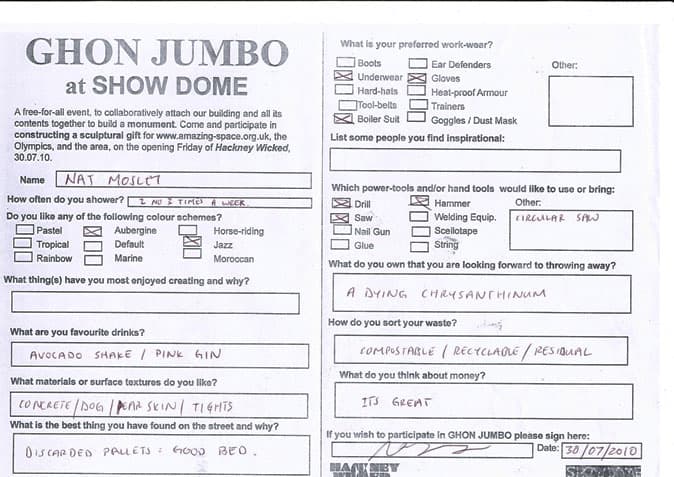 GHON JUMBO
at SHOW DOME
A free-for-all event, to collaboratively attach our building and all its
contents together to build a monument. Come and participate in
constructing a sculptural gift for www.amazing-space.org.uk, the
Olympics, and the area, on the opening Friday of Hackney Wicked,
30.07.10.
Name NAT MOSLET
How often do you shower? 2 NO 3 TIMES A WEEK.
Do you like any of the following colour schemes?
Pastel Aubergine Horse-riding
Tropical Default Jazz
Rainbow Marine Moroccan
What thing(s) have you most enjoyed creating and why?
What are you favourite drinks?
AVOCADO SHAKE / PINK GIN
What materials or surface textures do you like?
CONCRETE/DOG/ EAR SKIN/ TIGHTS
What is the best thing you have found on the street and why?
DISCARDED PALLETS = GOOD BED.
What is your preferred work-wear?
Boots Ear Defenders Other:
Underwear Gloves
Hard-hats Heat-proof Armour
Tool-belts Trainers
Boiler Suit Goggles / Dust Mask
List some people you find inspirational:
Which power-tools and/or hand tools would like to use or bring:
Drill Hammer Other:
Saw Welding Equip. CIRCULAR SAW
Nail Gun Scellotape
Glue String
What do you own that you are looking forward to throwing away?
A DYING CHRYSANTHINUM
How do you sort your waste?
COMPOSTABLE / RECYCLABLE / RESIDUAL
What do you think about money?
ITS GREAT
If you wish to participate in GHON JUMBO please sign here:
Date: 30/07/2010
HACKNEY